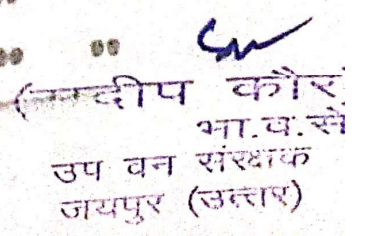 कौर
भा.व.से
उप वन संरक्षक
जयपुर (उत्तर)